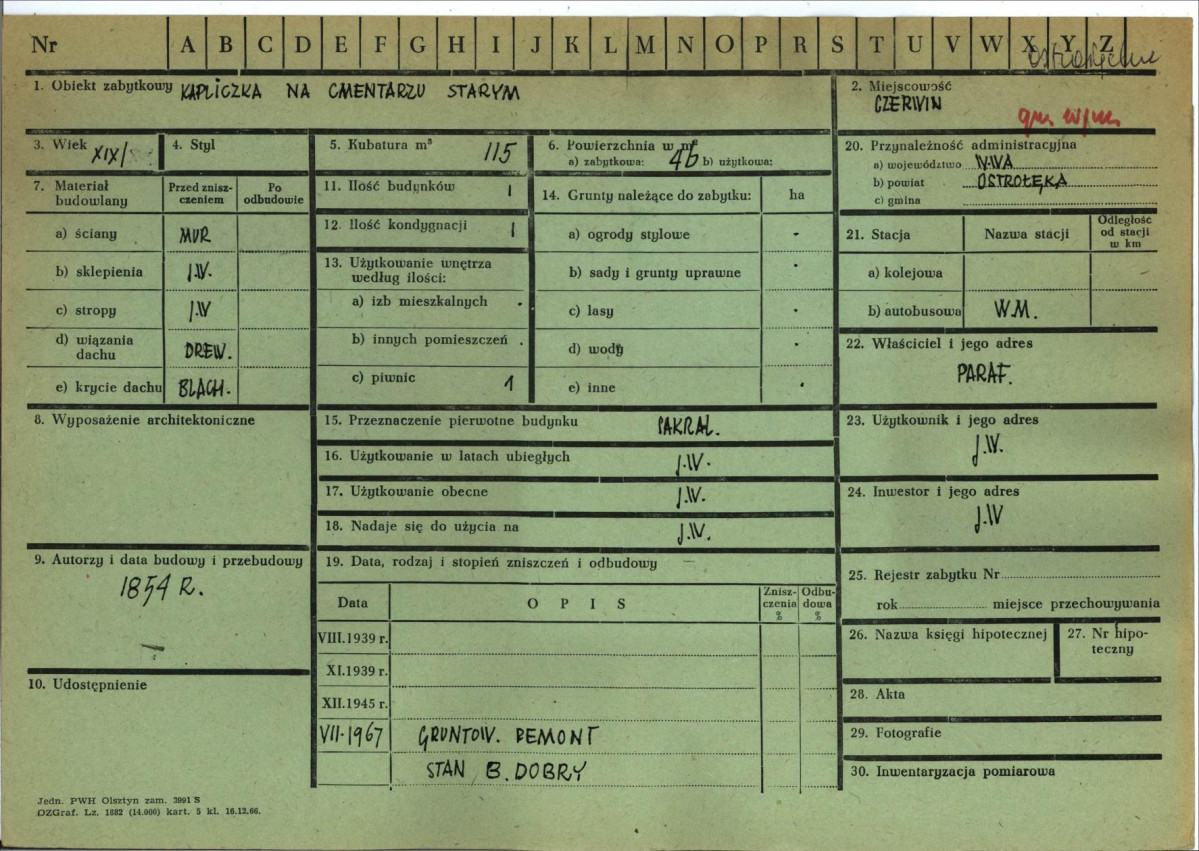 Nr A B C D E F G H I J K L M N O P R S T U V W X Y Z
1. Obiekt zabytkowy KAPLICZKA NA CMENTARZU STARYM
2. Miejscowość
CZERWIN
3. Wiek XIX/
4. Styl
5. Kubatura m³ 115
6. Powierzchnia w m²
a) zabytkowa: 46 b) użytkowa:
7. Materiał budowlany
Przed znisz-
czeniem
Po
odbudowie
a) ściany MUR
b) sklepienia J.W.
c) stropy J.W
d) wiązania
dachu DREW.
e) krycie dachu BLACH.
8. Wyposażenie architektoniczne
9. Autorzy i data budowy i przebudowy
1854 R.
10. Udostępnienie
11. Ilość budynków 1
12. Ilość kondygnacji 1
13. Użytkowanie wnętrza
według ilości:
a) izb mieszkalnych .
b) innych pomieszczeń .
c) piwnic 1
14. Grunty należące do zabytku: ha
a) ogrody stylowe -
b) sady i grunty uprawne -
c) lasy -
d) wody -
e) inne -
15. Przeznaczenie pierwotne budynku SAKRAL.
16. Użytkowanie w latach ubiegłych J.W.
17. Użytkowanie obecne J.W.
18. Nadaje się do użycia na J.W.
19. Data, rodzaj i stopień zniszczeń i odbudowy
Data OPIS
Znisz-
czenia
%
Odbu-
dowa
%
VIII.1939 r.
XI.1939 r.
XII.1945 r.
VII-1967 GRUNTOW. REMONT
STAN B. DOBRY
20. Przynależność administracyjna
a) województwo W-WA
b) powiat OSTROŁĘKA
c) gmina
21. Stacja Nazwa stacji
Odległość
od stacji
w km
a) kolejowa
b) autobusowa W.M.
22. Właściciel i jego adres
PARAF.
23. Użytkownik i jego adres
J.W.
24. Inwestor i jego adres
J.W
25. Rejestr zabytku Nr
rok miejsce przechowywania
26. Nazwa księgi hipotecznej
27. Nr hipo-
teczny
28. Akta
29. Fotografie
30. Inwentaryzacja pomiarowa
Jedn. PWH Olsztyn zam. 3991 S
DZGraf. Lz. 1882 (14.000) kart. 5 kl. 16.12.66.